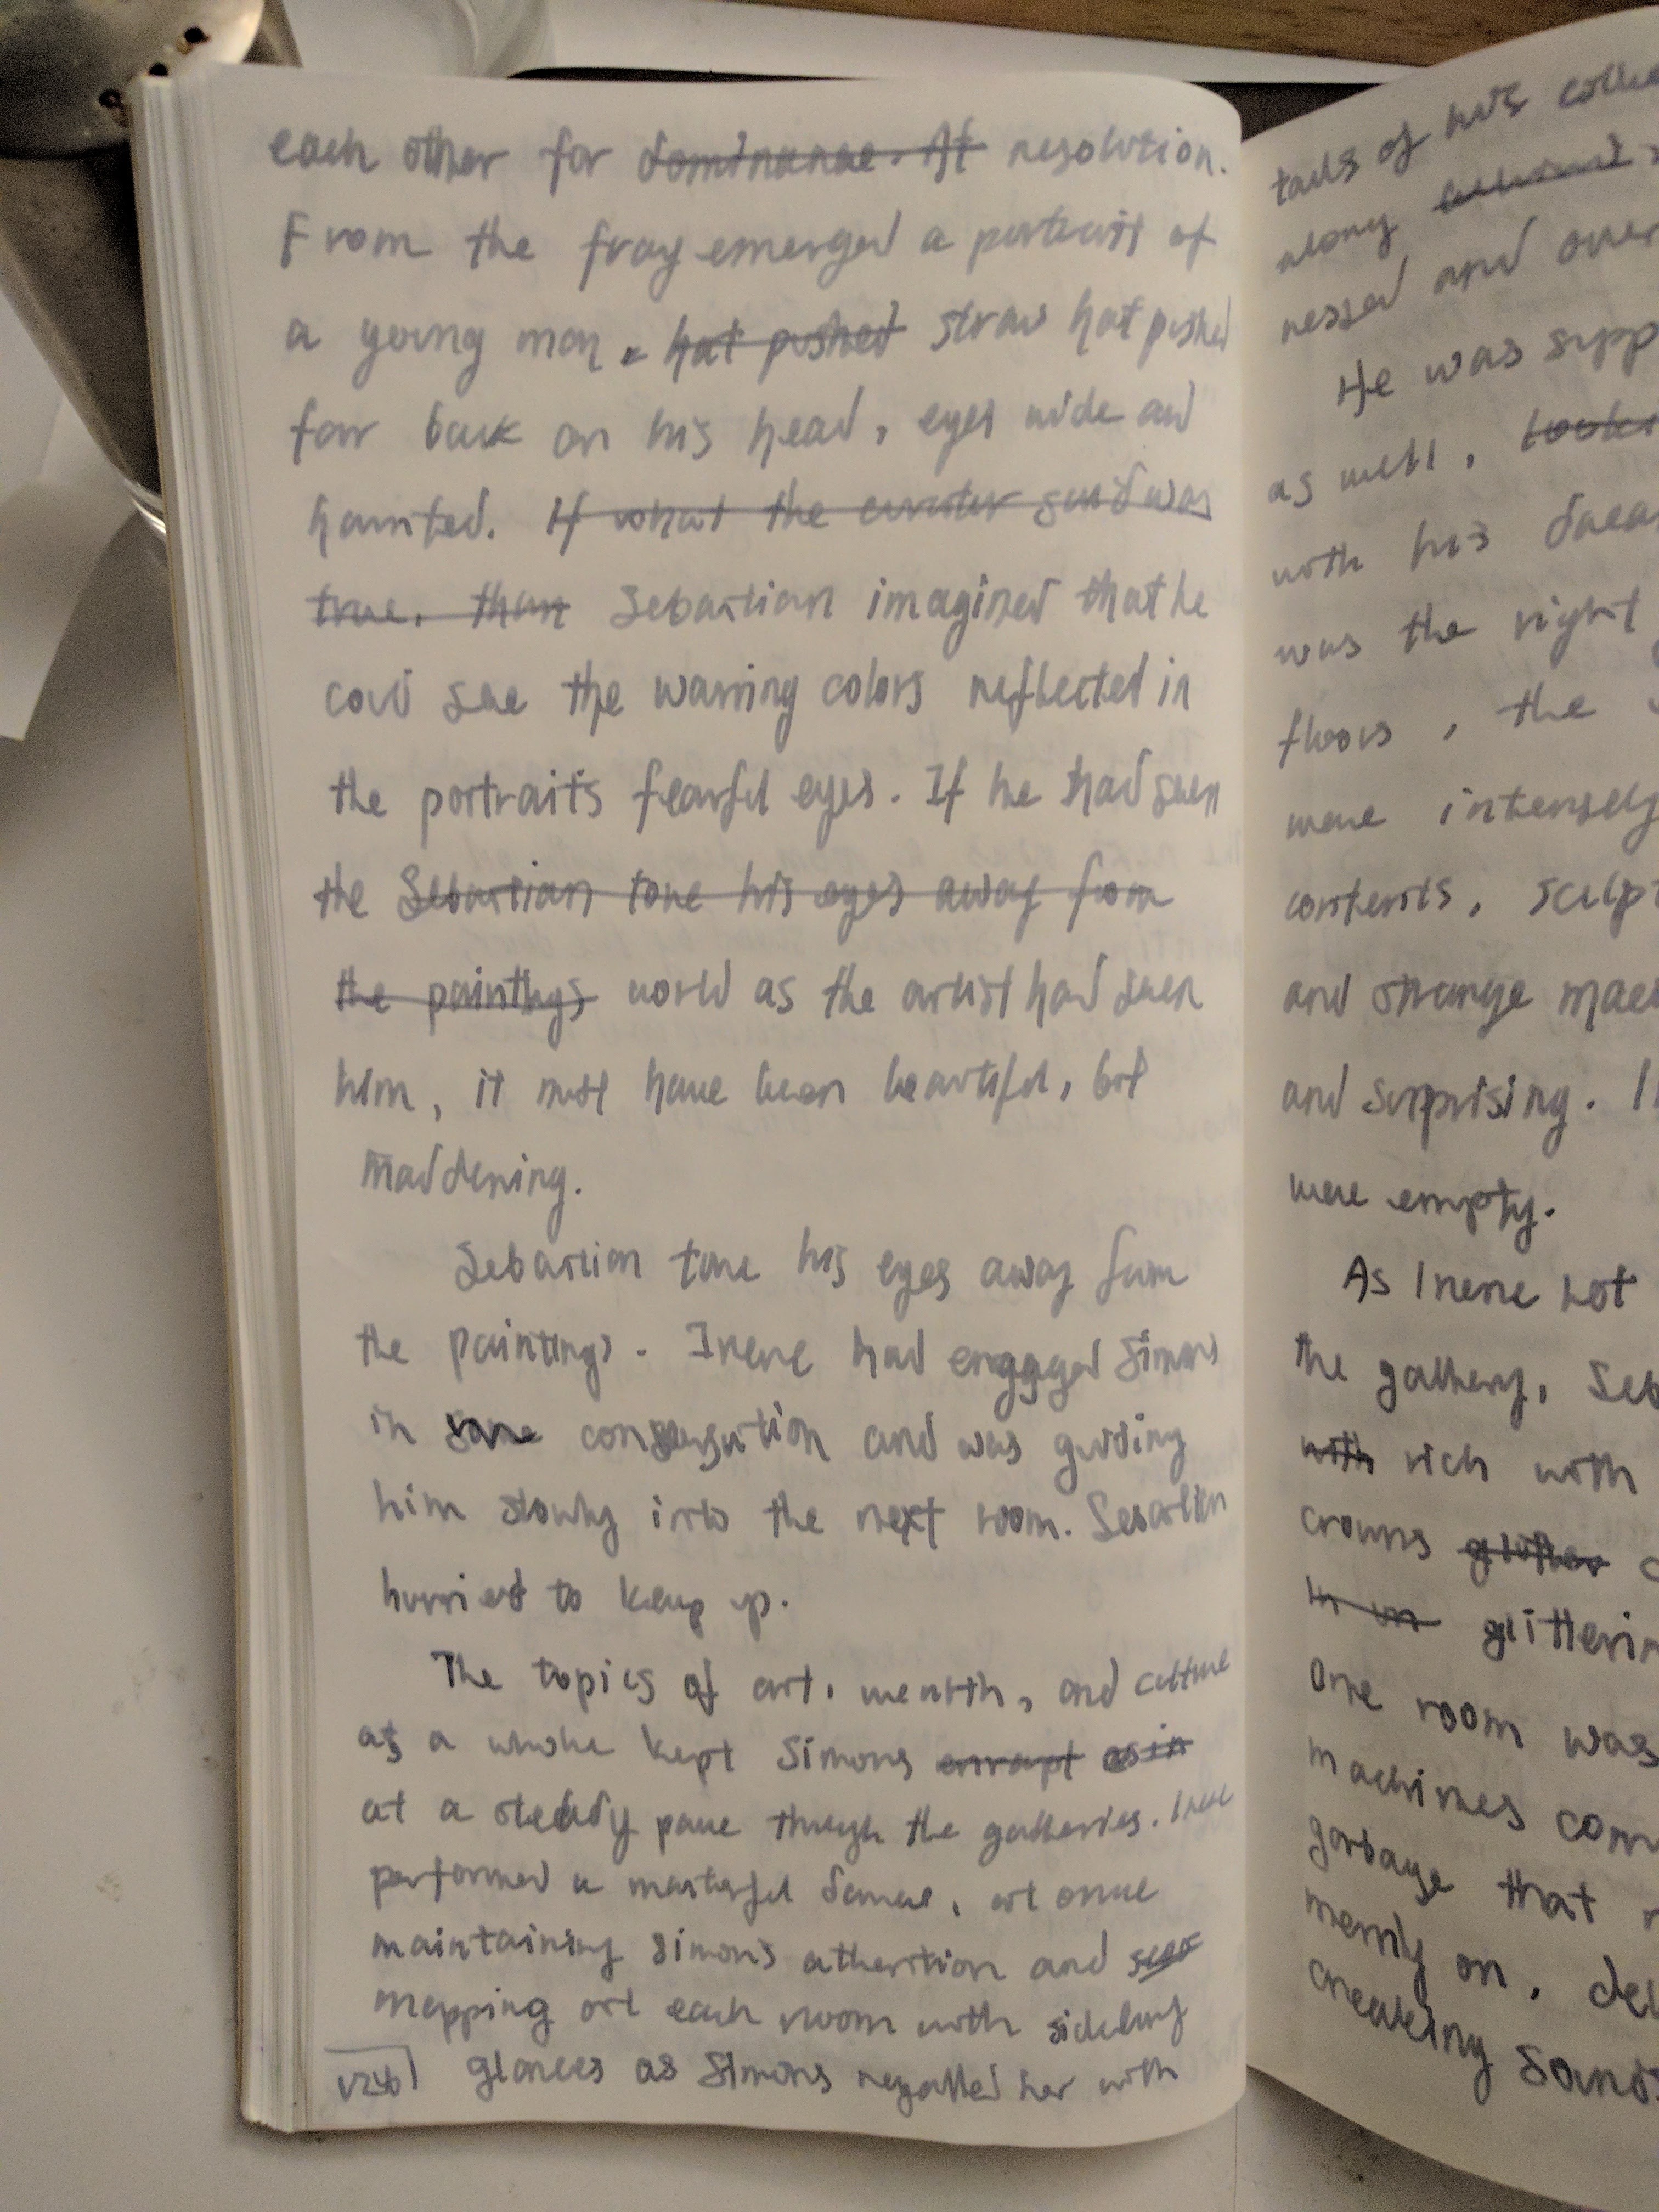 each other for dominance. At resolution.
From the fray emerged a portrait of
a young man, hat pushed straw hat pushed
far back on his head, eyes wide and
haunted. If what the curator said was
true, then Sebastian imagined that he
could see the warring colors reflected in
the portrait's fearful eyes. If he had seen
the Sebastian tore his eyes away from
the paintings world as the artist had seen
him, it must have been beautiful, but
maddening.
Sebastian tore his eyes away from
the paintings. Irene had engaged Simons
in some conversation and was guiding
him slowly into the next room. Sebastian
hurried to keep up.
The topics of art, wealth, and culture
as a whole kept Simons enrapt as in
at a steady pace through the galleries. Irene
performed a masterful dance, at once
maintaining Simon's attention and
mapping out each room with sidelong
glances as Simons regalled her with
tails of his
along
nessed and over
He was supp
as well,
with his
was the right
floors, the
were intensely
contents, sculpt
and strange
and surprising.
were empty.
As Irene
the gallery, Seb
with rich with
crowns
in an glitterin
One room was
machines com
garbage that
merrily on, del
creaking